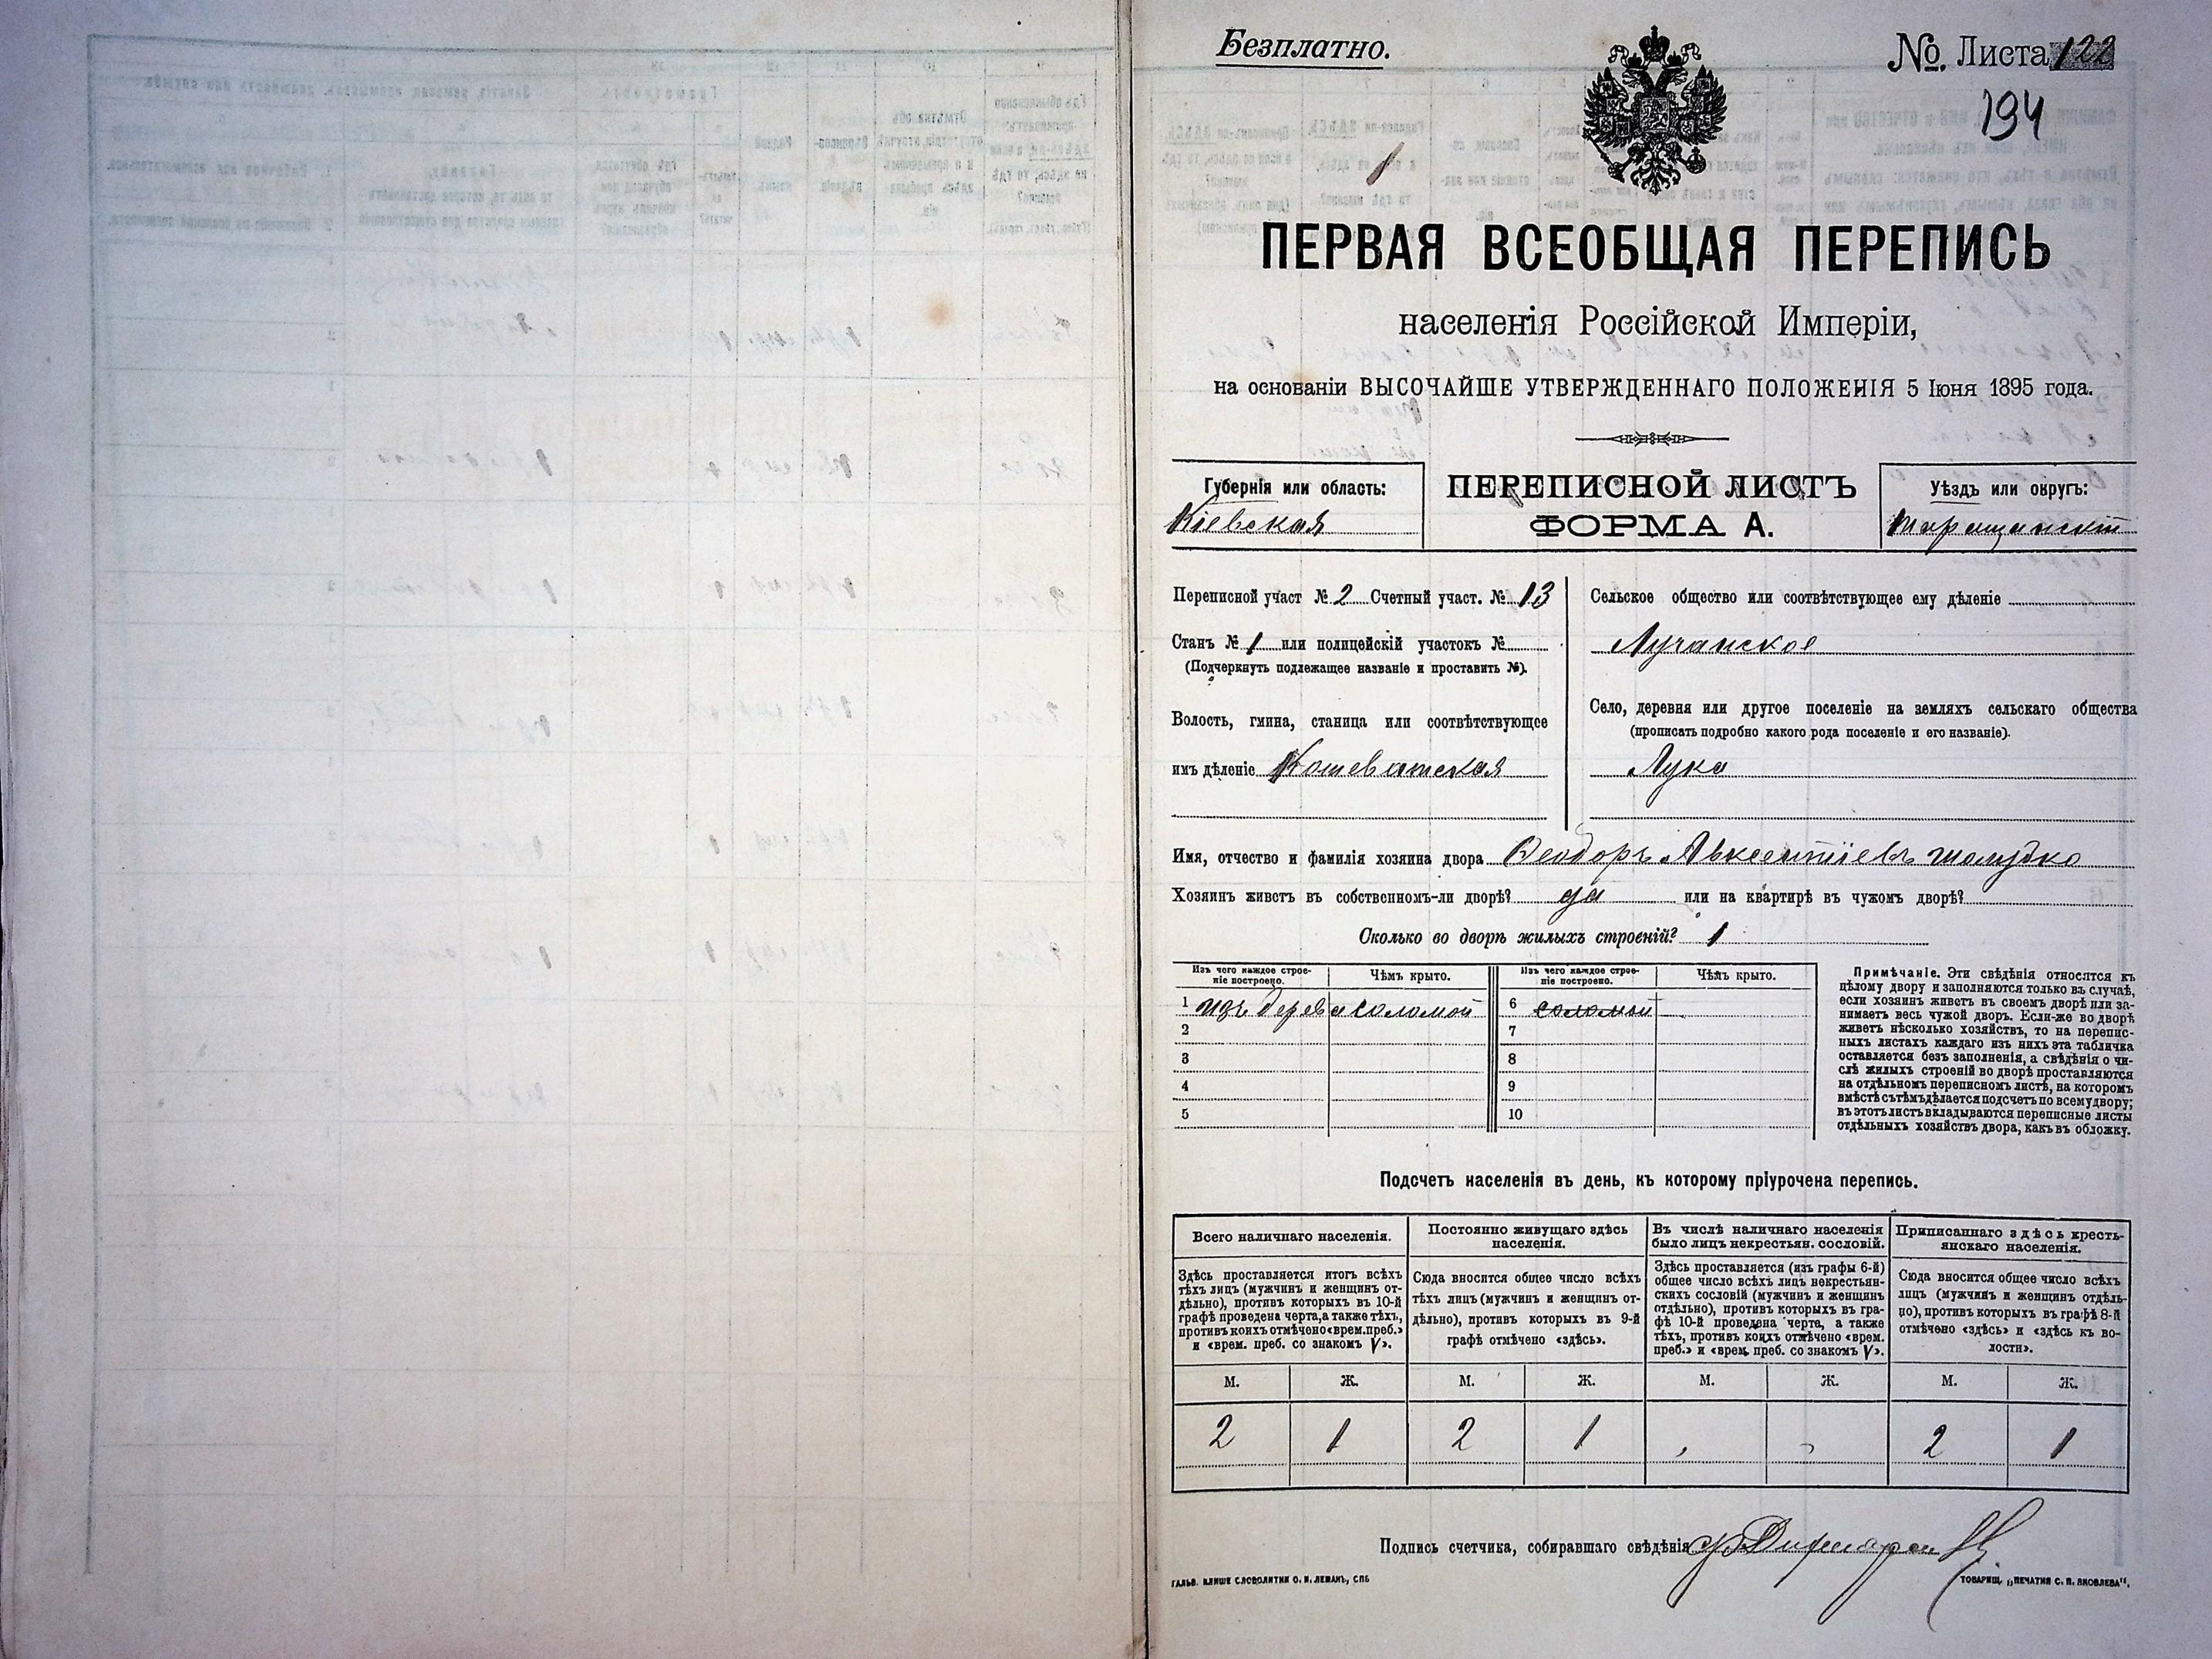 Безплатно.
№. Листа 122
194
1
ПЕРВАЯ ВСЕОБЩАЯ ПЕРЕПИСЬ
населенія Россійской Имперіи,
на основаніи ВЫСОЧАЙШЕ УТВЕРЖДЕННАГО ПОЛОЖЕНІЯ 5 Іюня 1895 года.
Губернія или область:
Кіевская
ПЕРЕПИСНОЙ ЛИСТЪ
ФОРМА А.
Уѣздъ или округъ:
Таращанскій
Переписной участ № 2 Счетный участ. № 13
Станъ № 1 или полицейскій участокъ №
(Подчеркнуть подлежащее названіе и проставить №).
Волость, гмина, станица или соотвѣтствующее
имъ дѣленіе Кошеватская
Сельское общество или соотвѣтствующее ему дѣленіе
Лучанское
Село, деревня или другое поселеніе на земляхъ сельскаго общества
(прописать подробно какого рода поселеніе и его названіе).
Лука
Имя, отчество и фамилія хозяина двора Ѳеодоръ Авксентіевъ Шолудко
Хозяинъ живетъ въ собственномъ-ли дворѣ? да или на квартирѣ въ чужомъ дворѣ?
Сколько во дворѣ жилыхъ строеній? 1
Изъ чего каждое строе-
ніе построено.
Чѣмъ крыто.
Изъ чего каждое строе-
ніе построено.
Чѣмъ крыто.
1 изъ дерева соломой 6 соломой
2 7
3 8
4 9
5 10
Примѣчаніе. Эти свѣдѣнія относятся къ
цѣлому двору и заполняются только въ случаѣ,
если хозяинъ живетъ въ своемъ дворѣ или за-
нимаетъ весь чужой дворъ. Если-же во дворѣ
живетъ нѣсколько хозяйствъ, то на перепис-
ныхъ листахъ каждаго изъ нихъ эта табличка
оставляется безъ заполненія, а свѣдѣнія о чи-
слѣ жилыхъ строеній во дворѣ проставляются
на отдѣльномъ переписномъ листѣ, на которомъ
вмѣстѣ съ тѣмъ дѣлается подсчетъ по всему двору;
въ этотъ листъ вкладываются переписные листы
отдѣльныхъ хозяйствъ двора, какъ въ обложку.
Подсчетъ населенія въ день, къ которому пріурочена перепись.
Всего наличнаго населенія.
Здѣсь проставляется итогъ всѣхъ
тѣхъ лицъ (мужчинъ и женщинъ от-
дѣльно), противъ которыхъ въ 10-й
графѣ проведена черта, а также тѣхъ,
противъ коихъ отмѣчено «врем. преб.»
и «врем. преб. со знакомъ V».
Постоянно живущаго здѣсь
населенія.
Сюда вносится общее число всѣхъ
тѣхъ лицъ (мужчинъ и женщинъ от-
дѣльно), противъ которыхъ въ 9-й
графѣ отмѣчено «здѣсь».
Въ числѣ наличнаго населенія
было лицъ некрестьян. сословій.
Здѣсь проставляется (изъ графы 6-й)
общее число всѣхъ лицъ некрестьян-
скихъ сословій (мужчинъ и женщинъ
отдѣльно), противъ которыхъ въ гра-
фѣ 10-й проведена черта, а также
тѣхъ, противъ коихъ отмѣчено «врем.
преб.» и «врем. преб. со знакомъ V».
Приписаннаго здѣсь кресть-
янскаго населенія.
Сюда вносится общее число всѣхъ
лицъ (мужчинъ и женщинъ отдѣль-
но), противъ которыхъ въ графѣ 8-й
отмѣчено «здѣсь» и «здѣсь къ во-
лости».
М. Ж. М. Ж. М. Ж. М. Ж.
2 1 2 1 „ „ 2 1
Подпись счетчика, собиравшаго свѣдѣнія
ГАЛЬВ. КЛИШЕ СЛОВОЛИТНИ О. И. ЛЕМАНЪ, СПБ
ТОВАРИЩ. „ПЕЧАТНЯ С. П. ЯКОВЛЕВА“.